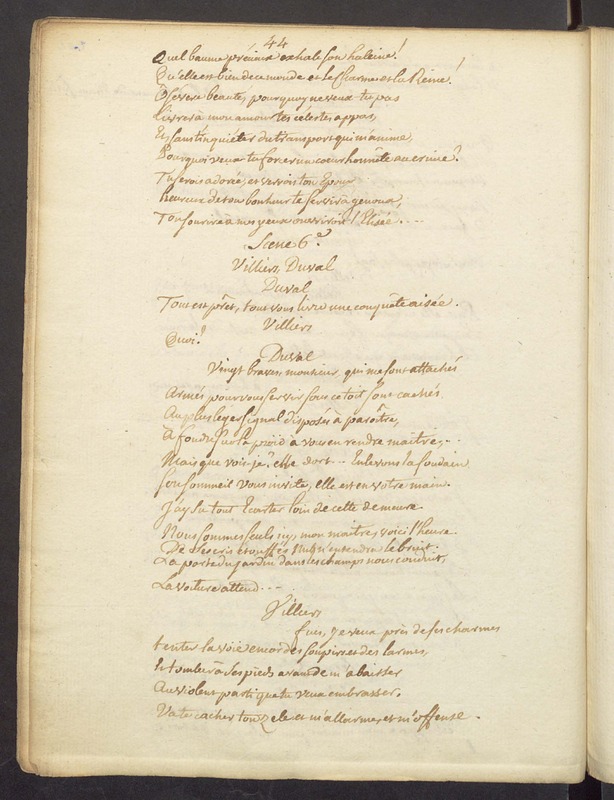 44
Quel baume précieux exhale son haleine!
Qu'elle est bien de ce monde et le Charme et la Reine!
O severe beauté, pourquoy ne veux tu pas
livrer à mon amour tes célestes appas,
Et sans t'inquiéter du transport qui m'anime,
Pourquoi veux tu forcer un coeur honnête au crime?
Tu serois adorée, et verrois ton Epoux
heureux de ton bonheur te servir à genoux,
Ton sourire à mes yeux ouvriroit l'Elisée. ...
Scene 6.e
Villiers, Duval
Duval
Tout est prêt, tout vous livre une conquête aisée.
Villiers
Quoi?
Duval
Vingt braves, monsieur, qui me sont attachés
Armés pour vous servir sous ce toit sont cachés.
Au plus leger signal disposés à paroître,
à foudre sur la proie à vous en rendre maître, ..
Mais que vois-je? elle dort... Enlevons la soudain
son sommeil vous invite, elle est en votre main.
J'ay sû tout Ecarter loin de cette demeure
Nous sommes seuls icy, mon maitre, voici l'heure
De ses cris etouffés nul n'entendra le bruit.
La porte du jardin dans les champs nous conduit,
La voiture attend. ...
Villiers
fuis, Je veux près de ses charmes
tenter la voie encor des soupirs et des larmes,
Et tomber à ses pieds avant de m'abaisser
Au violent parti que tu veux embrasser,
Va te cacher ton zele et m'allarme, et m'offense.